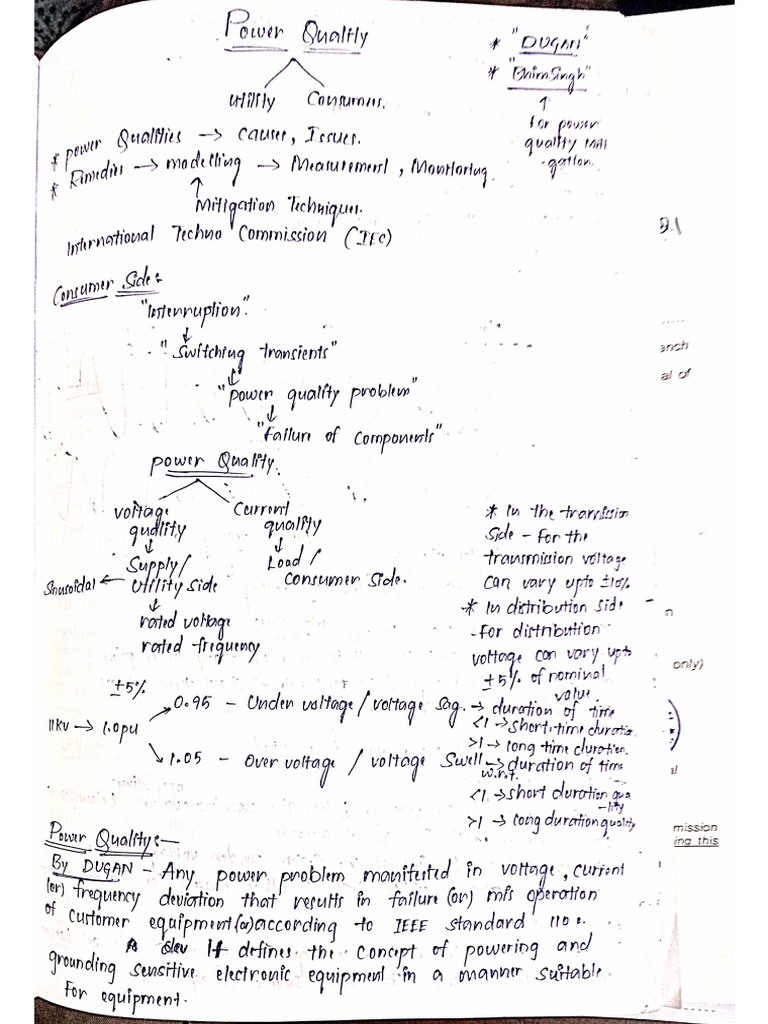 Power Quality
* "DUGAN"
* "Bhim Singh"
↑
for power
quality Miti
gation.
Utility Consumers.
* power Qualities → causes, Issues.
* Remedies → modelling → Measurement, Monitoring
↑
Mitigation Techniques.
International Techno Commission (IEC)
21
Consumer Side:
"Interruption"
↓
"Switching transients"
↓
"power quality problem"
↓
"Failure of components"
anch
al of
Power Quality.
Voltage quality
↓
Supply/
Utility side → Sinusoidal
↓
rated voltage
rated frequency
Current quality
↓
Load/
Consumer Side.
* In the tranmission
side - for the
transmission voltage
can vary upto ±10%
* In distribution side
- for distribution
voltage can vary upto
±5% of nominal
value.
n
only)
al
mission
ing this
±5%
11kv → 1.0pu
0.95 - Under voltage / voltage sag. → duration of time
<1 → short time duration
>1 → long time duration.
1.05 - Over voltage / voltage Swell → duration of time
w.r.t.
<1 → short duration qua
-lity
>1 → long duration quality
Power Quality:-
By DUGAN - Any power problem manifested in voltage, current
(or) frequency deviation that results in failure (or) mis operation
of customer equipment (or) according to IEEE standard 1100.
It defines the concept of powering and
grounding sensitive electronic equipment in a manner suitable
for equipment.